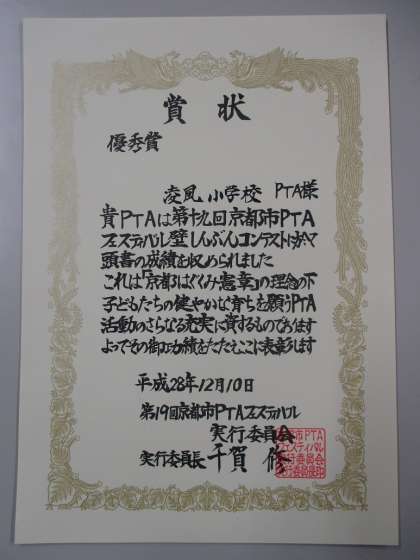 賞状
優秀賞
凌風小学校 PTA様
貴PTAは第十九回京都市PTA
フェスティバル壁しんぶんコンテストにおいて
頭書の成績を収められました
これは「京都はぐくみ憲章」の理念の下
子どもたちの健やかな育ちを願うPTA
活動のさらなる充実に資するものであります
よってその御功績をたたえここに表彰します
平成28年12月10日
第19回京都市PTAフェスティバル
実行委員会
実行委員長 千賀 修